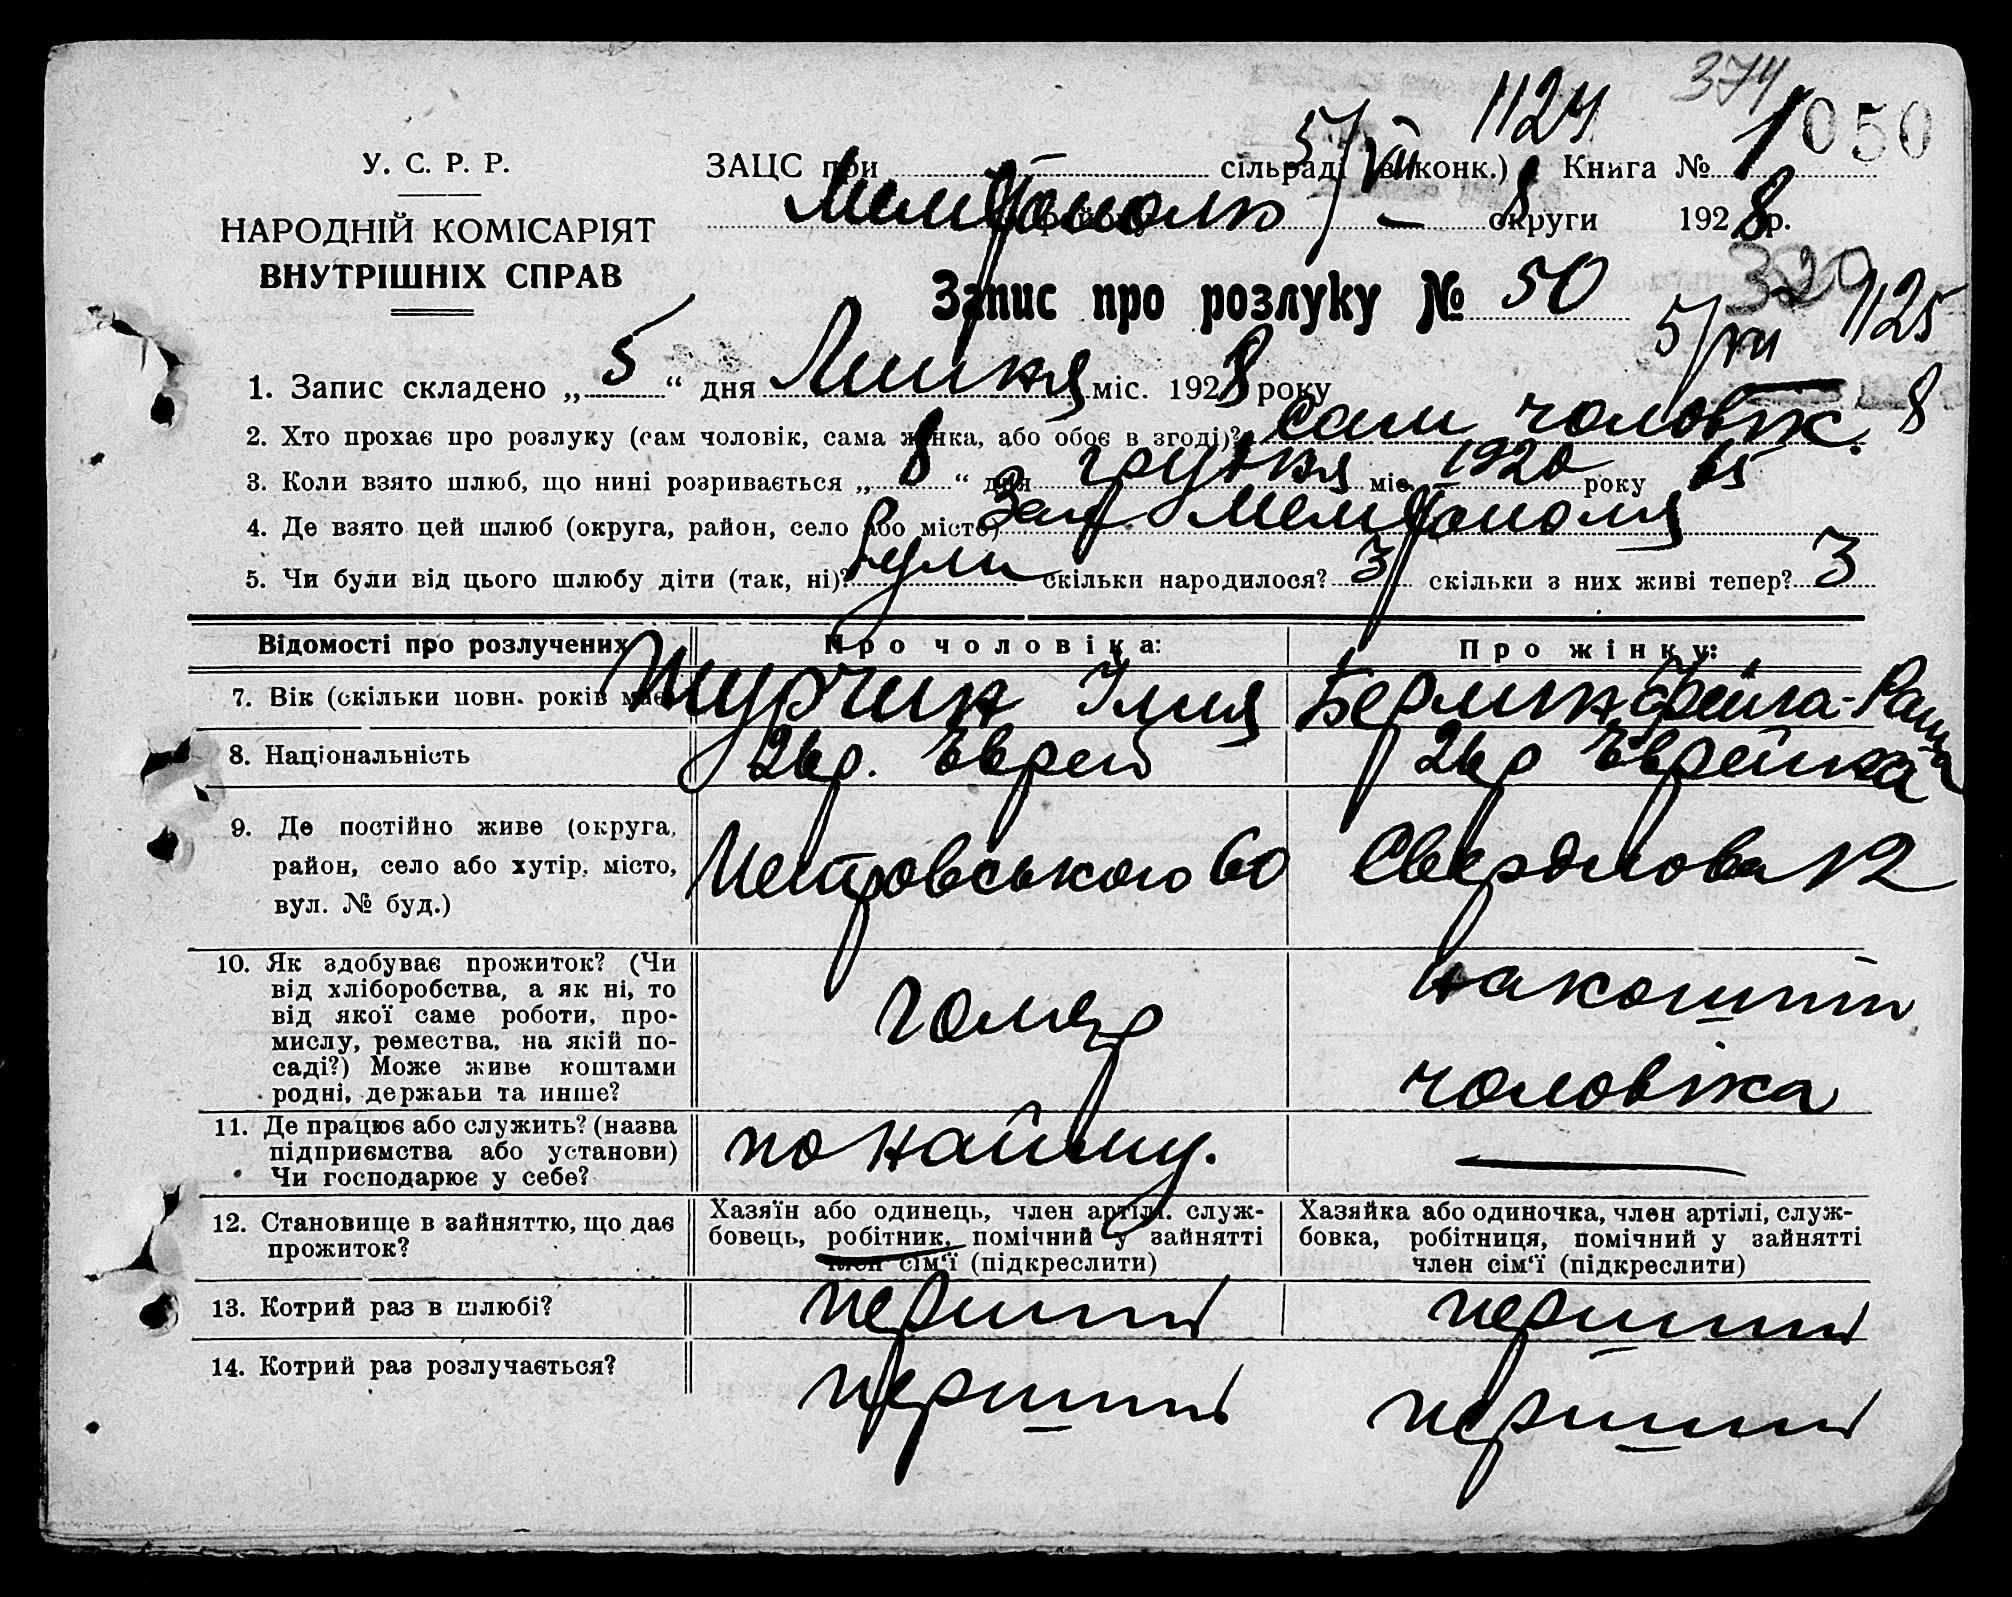 374
1124
1050
5/VII
8
У. С. Р. Р.
НАРОДНІЙ КОМІСАРІЯТ
ВНУТРІШНІХ СПРАВ
ЗАЦС при — сільраді (виконк.) Книга №
Мелітополь — округи 1928 р.
Запис про розлуку № 50
320
5/VII 1125
8
1. Запис складено „5“ дня Липня міс. 1928 року
2. Хто прохає про розлуку (сам чоловік, сама жінка, або обоє в згоді)? сам чоловік.
3. Коли взято шлюб, що нині розривається „8“ дня грудня міс. 1920 року
4. Де взято цей шлюб (округа, район, село або місто) Загс Мелітополя
5. Чи були від цього шлюбу діти (так, ні)? були скільки народилося? 3 скільки з них живі тепер? 3
Відомості про розлучених Про чоловіка: Про жінку:
7. Вік (скільки повн. років має) Шурчин Ілля Берлин Фейга-Раша
8. Національність 26 р. Еврей 26 р Еврейка
9. Де постійно живе (округа, район, село або хутір, місто, вул. № буд.) Петровського 60 Свердлова 12
10. Як здобуває прожиток? (Чи
від хліборобства, а як ні, то
від якої саме роботи, про-
мислу, ремества, на якій по-
саді?) Може живе коштами
родні, держави та инше?
на кошти
чоловіка
11. Де працює або служить? (назва
підприємства або установи)
Чи господарює у себе?
по найму. —
12. Становище в зайняттю, що дає
прожиток?
Хазяїн або одинець, член артілі, служ-
бовець, робітник, помічний у зайнятті
член сім'ї (підкреслити)
Хазяйка або одиночка, член артілі, служ-
бовка, робітниця, помічний у зайнятті
член сім'ї (підкреслити)
13. Котрий раз в шлюбі? перший перший
14. Котрий раз розлучається? перший перший